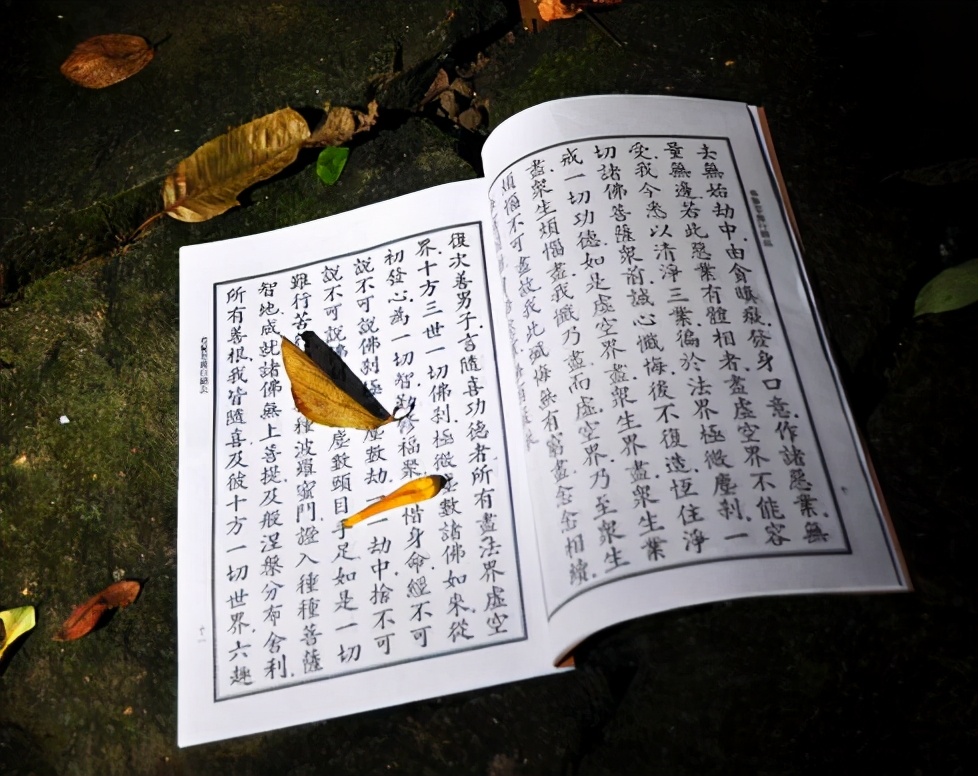 去無始劫中.由貪瞋癡.發身口意.作諸惡業.無
量無邊若此惡業有體相者.盡虛空界不能容
受.我今悉以清淨三業徧於法界極微塵剎.一
切諸佛菩薩眾前誠心懺悔後不復造.恆住淨
戒一切功德.如是虛空界盡眾生界盡.眾生業
盡.眾生煩惱盡我懺乃盡而虛空界乃至眾生
煩惱不可盡故我此懺悔無有窮盡念念相續.
復次善男子.言隨喜功德者所有盡法界虛空
界十方三世一切佛剎.極微塵數諸佛如來.從
初發心.為一切智勤修福聚.不惜身命.經不可
說不可說佛剎極微塵數劫.一一劫中捨不可
說不可說佛塵數頭目手足如是一切
難行苦種波羅蜜門.證入種種菩薩
智地.成就諸佛無上菩提.及般涅槃.分布舍利.
所有善根.我皆隨喜.及彼十方一切世界.六趣